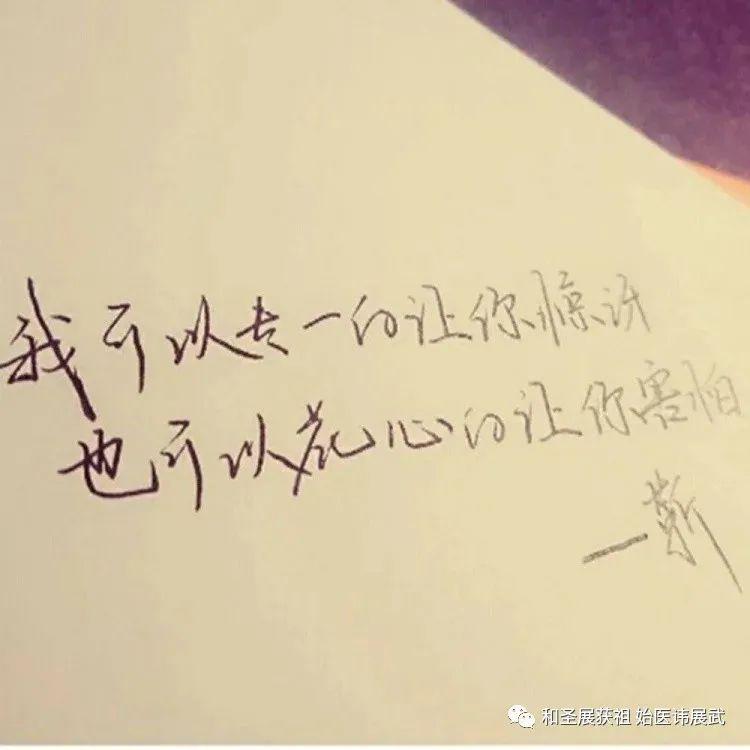 我可以专一的让你惊讶
也可以花心的让你害怕
和圣展获祖 始医讳展武